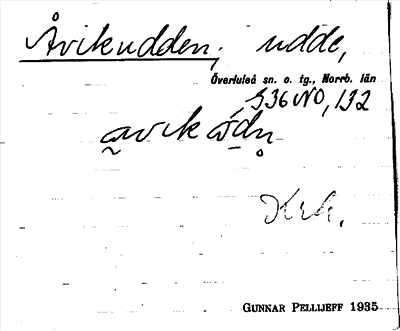 Åvikudden, udde,
Överluleå sn. o. tg., Norrb. län
S36NO, 132
Krk.
GUNNAR PELLIJEFF 1935